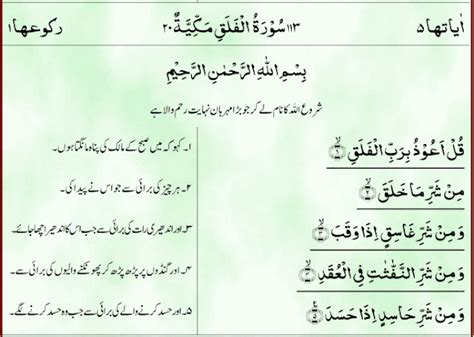 اٰیاتها ۵ ۱۱۳ سُوْرَةُ الْفَلَقِ مَكِّيَّةٌ ۲۰ رکوعها ۱
بِسْمِ اللّٰهِ الرَّحْمٰنِ الرَّحِيْمِ
شروع اللہ کا نام لے کر جو بڑا مہربان نہایت رحم والا ہے
قُلْ اَعُوْذُ بِرَبِّ الْفَلَقِ ۙ﴿۱﴾
۱۔ کہو کہ میں صبح کے مالک کی پناہ مانگتا ہوں۔
مِنْ شَرِّ مَا خَلَقَ ۙ﴿۲﴾
۲۔ ہر چیز کی برائی سے جو اس نے پیدا کی۔
وَ مِنْ شَرِّ غَاسِقٍ اِذَا وَقَبَ ۙ﴿۳﴾
۳۔ اور اندھیری رات کی برائی سے جب اس کا اندھیرا چھا جائے۔
وَ مِنْ شَرِّ النَّفّٰثٰتِ فِی الْعُقَدِ ۙ﴿۴﴾
۴۔ اور گنڈوں پر پڑھ پڑھ کر پھونکنے والیوں کی برائی سے۔
وَ مِنْ شَرِّ حَاسِدٍ اِذَا حَسَدَ ﴿۵﴾
۵۔ اور حسد کرنے والے کی برائی سے جب وہ حسد کرنے لگے۔